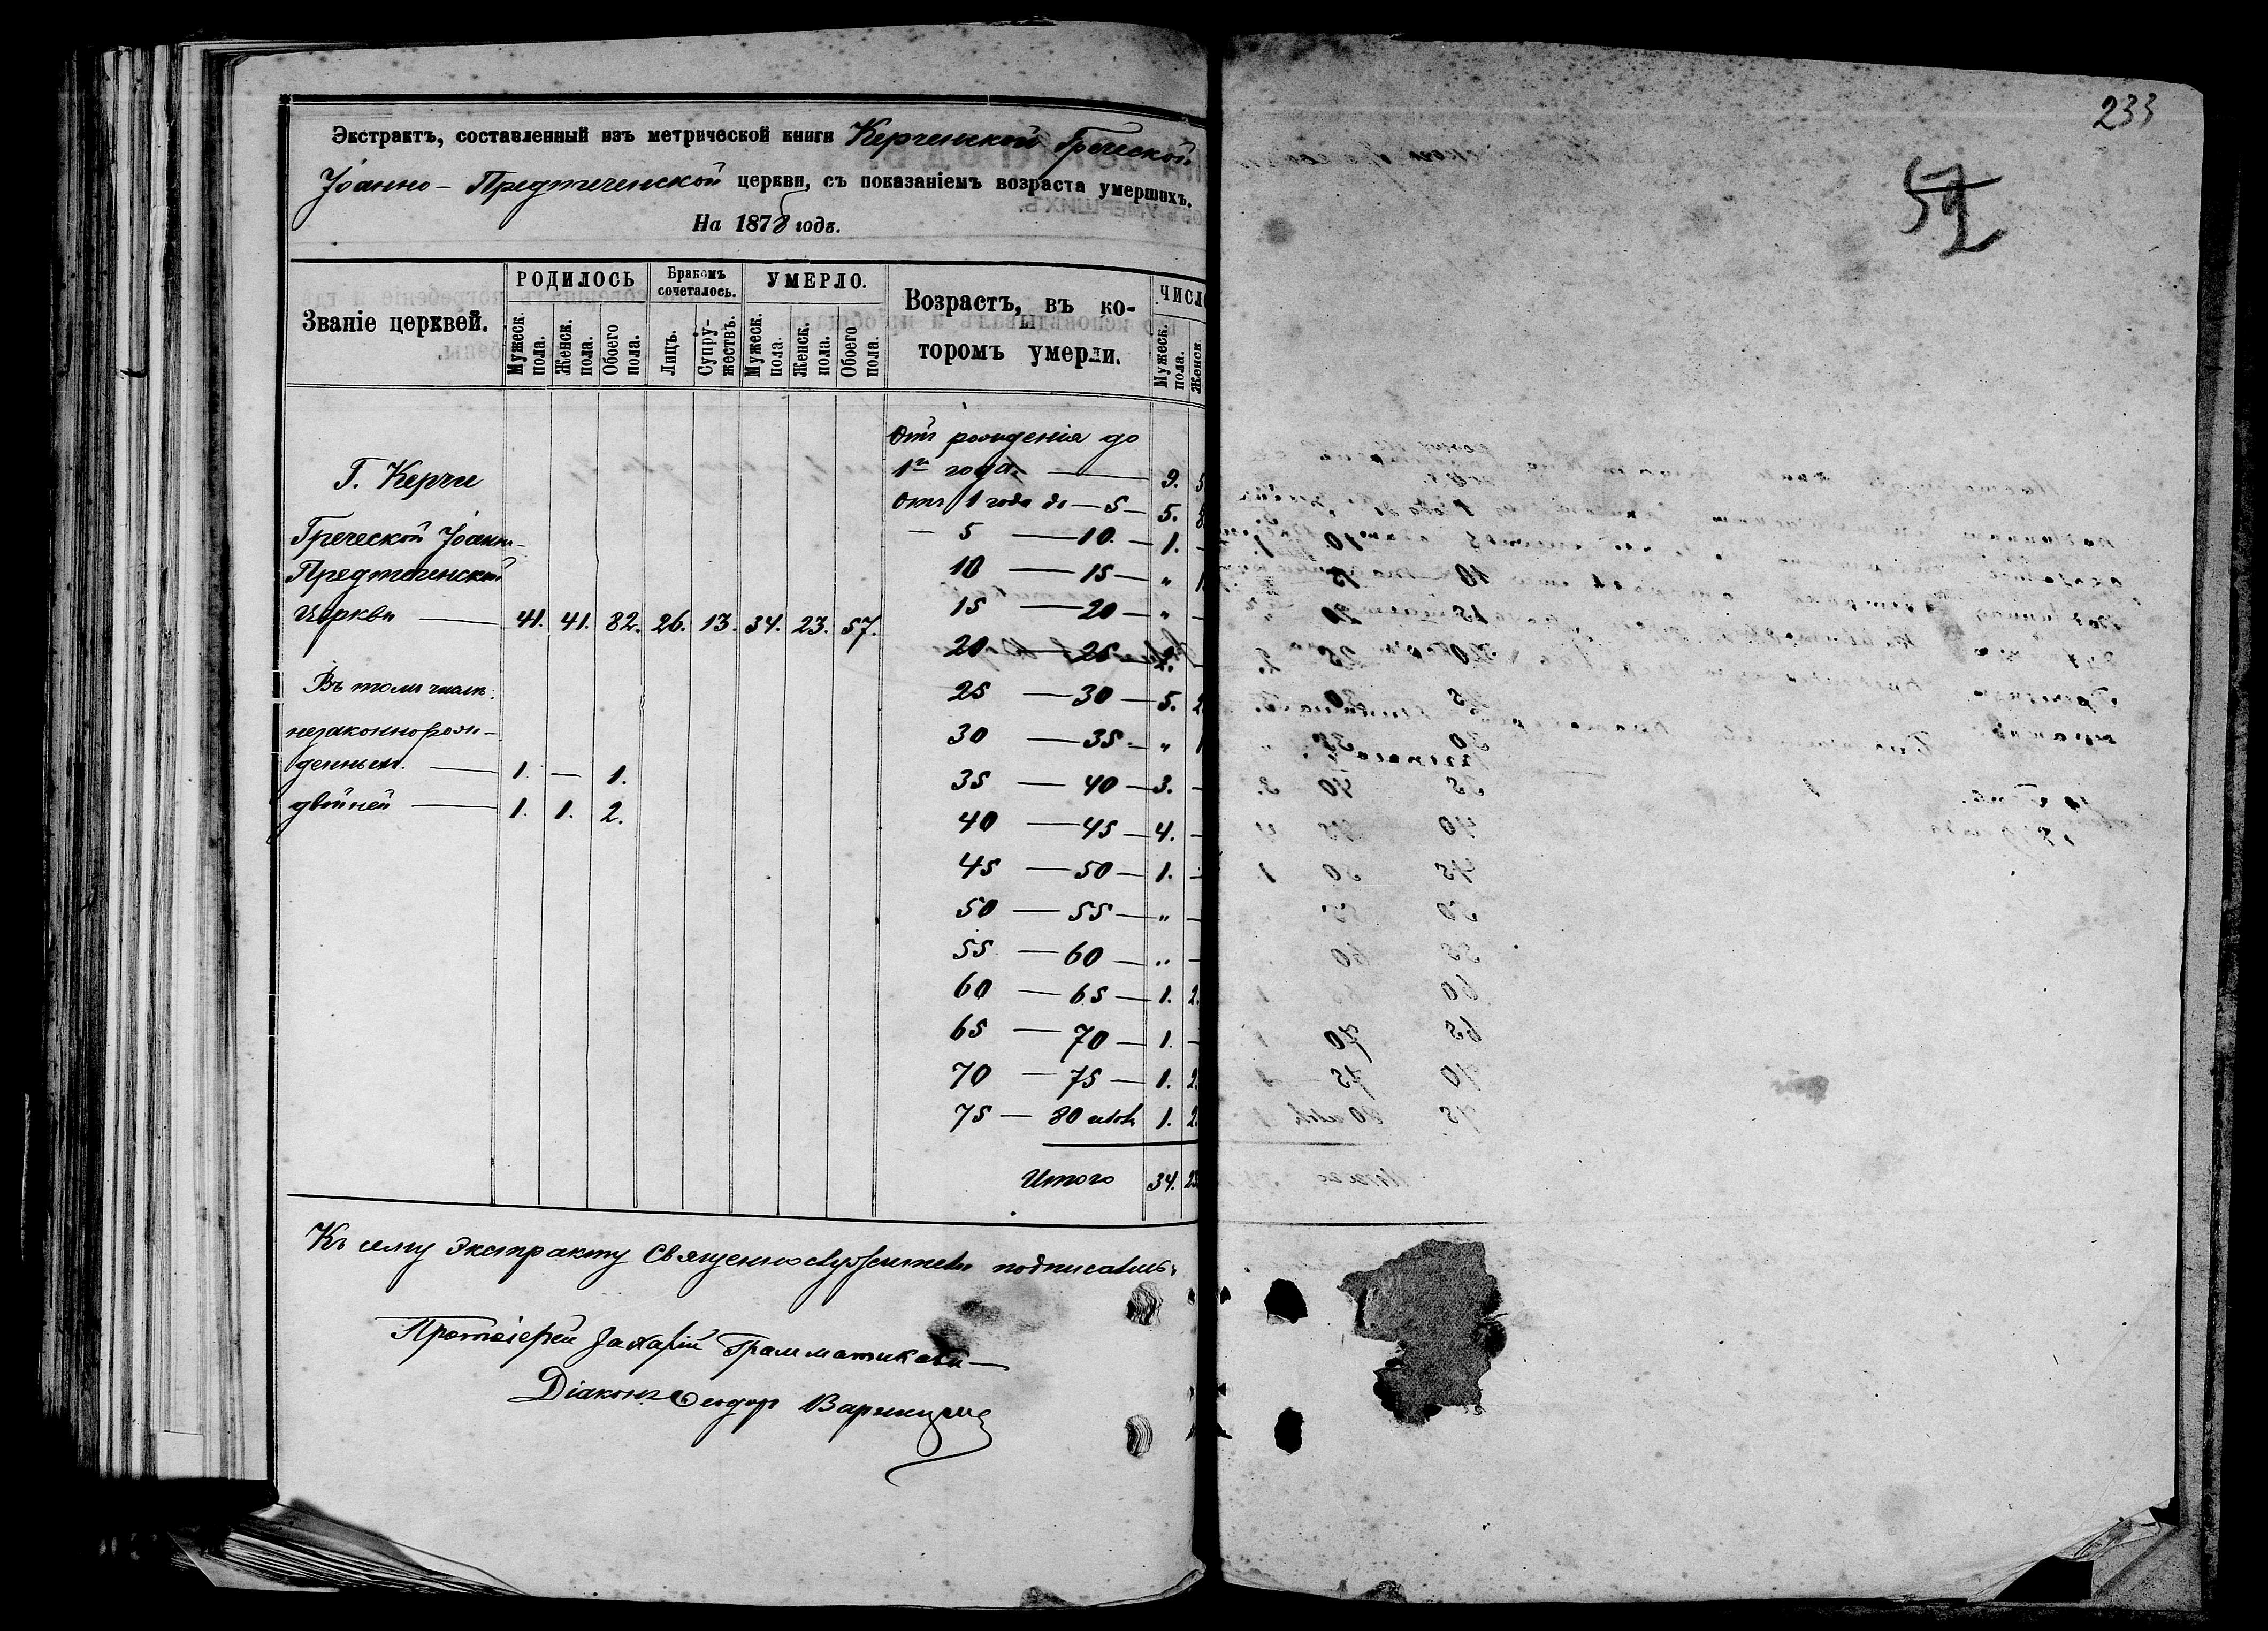 233
52
Экстрактъ, составленный изъ метрической книги Керченской Греческой
Іоанно-Предтеченской церкви, съ показаніемъ возраста умершихъ.
На 1878 годъ.
Званіе церквей.
РОДИЛОСЬ
Мужеск. пола.
Женск. пола.
Обоего пола.
Бракомъ сочеталось.
Лицъ.
Супружествъ.
УМЕРЛО.
Мужеск. пола.
Женск. пола.
Обоего пола.
Возрастъ, въ ко-
торомъ умерли.
ЧИСЛО
Мужеск. пола.
Женск
Г. Керчи
Греческой Іоанно-
Предтеченской
Церкви — 41. 41. 82. 26. 13. 34. 23. 57.
Въ томъ числѣ:
незаконнорож-
денныхъ. — 1. — 1.
двойней — 1. 1. 2.
Отъ рожденія до
1го года. — 9. 5
Отъ 1 года до — 5 — 5. 8
— 5 — 10. — 1. —
10 — 15 — „ 1
15 — 20 — „ —
20 — 25 — 2. —
25 — 30 — 5. 2
30 — 35 — „ 1
35 — 40 — 3. —
40 — 45 — 4. —
45 — 50 — 1. —
50 — 55 — „ —
55 — 60 — „ —
60 — 65 — 1. 2.
65 — 70 — 1. —
70 — 75 — 1. 2.
75 — 80 лѣтъ 1. 2.
Итого 34. 23
Къ сему Экстракту Священнослужители подписались:
Протоіерей Захарій Грамматикати
Діаконъ Ѳеодоръ